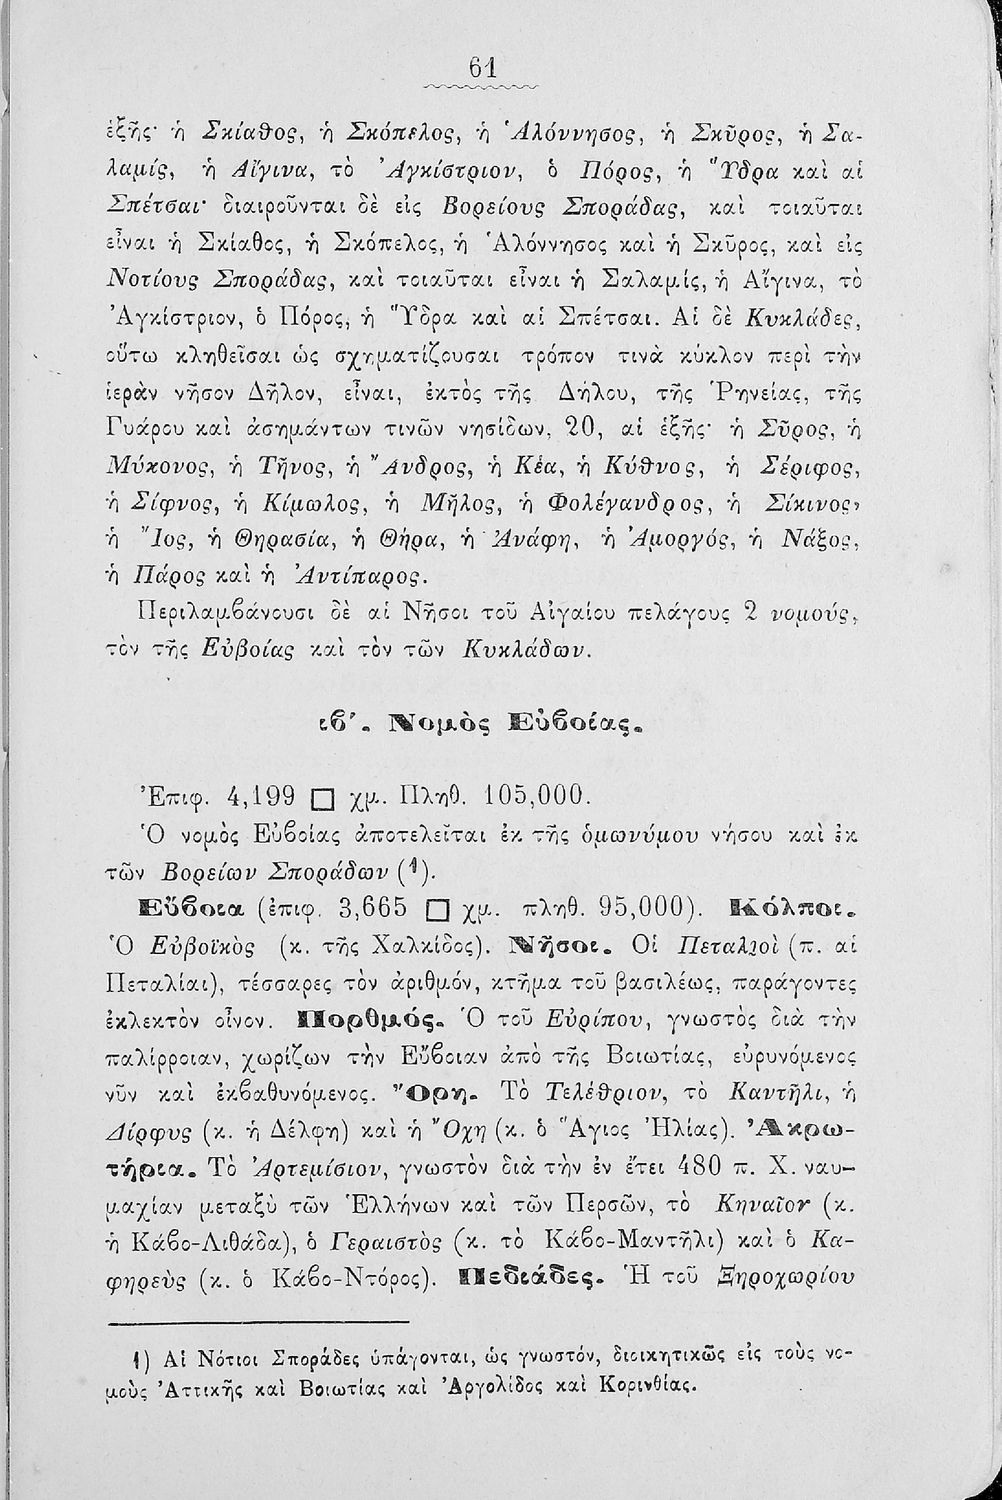 61
ἑξῆς· ἡ Σκίαθος, ἡ Σκόπελος, ἡ Ἁλόννησος, ἡ Σκῦρος, ἡ Σα-
λαμίς, ἡ Αἴγινα, τὸ Ἀγκίστριον, ὁ Πόρος, ἡ Ὕδρα καὶ αἱ
Σπέτσαι· διαιροῦνται δὲ εἰς Βορείους Σποράδας, καὶ τοιαῦται
εἶναι ἡ Σκίαθος, ἡ Σκόπελος, ἡ Ἁλόννησος καὶ ἡ Σκῦρος, καὶ εἰς
Νοτίους Σποράδας, καὶ τοιαῦται εἶναι ἡ Σαλαμίς, ἡ Αἴγινα, τὸ
Ἀγκίστριον, ὁ Πόρος, ἡ Ὕδρα καὶ αἱ Σπέτσαι. Αἱ δὲ Κυκλάδες,
οὕτω κληθεῖσαι ὡς σχηματίζουσαι τρόπον τινὰ κύκλον περὶ τὴν
ἱερὰν νῆσον Δῆλον, εἶναι, ἐκτὸς τῆς Δήλου, τῆς Ῥηνείας, τῆς
Γυάρου καὶ ἀσημάντων τινῶν νησίδων, 20, αἱ ἑξῆς· ἡ Σῦρος, ἡ
Μύκονος, ἡ Τῆνος, ἡ Ἄνδρος, ἡ Κέα, ἡ Κύθνος, ἡ Σέριφος,
ἡ Σίφνος, ἡ Κίμωλος, ἡ Μῆλος, ἡ Φολέγανδρος, ἡ Σίκινος,
ἡ Ἴος, ἡ Θηρασία, ἡ Θήρα, ἡ Ἀνάφη, ἡ Ἀμοργός, ἡ Νάξος,
ἡ Πάρος καὶ ἡ Ἀντίπαρος.
Περιλαμβάνουσι δὲ αἱ Νῆσοι τοῦ Αἰγαίου πελάγους 2 νομούς,
τὸν τῆς Εὐβοίας καὶ τὸν τῶν Κυκλάδων.
ιβʹ. Νομὸς Εὐβοίας.
Ἐπιφ. 4,199 □ χμ. Πληθ. 105,000.
Ὁ νομὸς Εὐβοίας ἀποτελεῖται ἐκ τῆς ὁμωνύμου νήσου καὶ ἐκ
τῶν Βορείων Σποράδων (1).
Εὔβοια (ἐπιφ. 3,665 □ χμ. πληθ. 95,000). Κόλποι.
Ὁ Εὐβοϊκὸς (κ. τῆς Χαλκίδος). Νῆσοι. Οἱ Πεταλιοὶ (π. αἱ
Πεταλίαι), τέσσαρες τὸν ἀριθμόν, κτῆμα τοῦ βασιλέως, παράγοντες
ἐκλεκτὸν οἶνον. Πορθμός. Ὁ τοῦ Εὐρίπου, γνωστὸς διὰ τὴν
παλίρροιαν, χωρίζων τὴν Εὔβοιαν ἀπὸ τῆς Βοιωτίας, εὐρυνόμενος
νῦν καὶ ἐκβαθυνόμενος. Ὄρη. Τὸ Τελέθριον, τὸ Καντῆλι, ἡ
Δίρφυς (κ. ἡ Δέλφη) καὶ ἡ Ὄχη (κ. ὁ Ἅγιος Ἠλίας). Ἀκρω-
τήρια. Τὸ Ἀρτεμίσιον, γνωστὸν διὰ τὴν ἐν ἔτει 480 π. Χ. ναυ-
μαχίαν μεταξὺ τῶν Ἑλλήνων καὶ τῶν Περσῶν, τὸ Κηναῖον (κ.
ἡ Κάβο-Λιθάδα), ὁ Γεραιστὸς (κ. τὸ Κάβο-Μαντῆλι) καὶ ὁ Κα-
φηρεὺς (κ. ὁ Κάβο-Ντόρος). Πεδιάδες. Ἡ τοῦ Ξηροχωρίου
1) Αἱ Νότιοι Σποράδες ὑπάγονται, ὡς γνωστόν, διοικητικῶς εἰς τοὺς νο-
μοὺς Ἀττικῆς καὶ Βοιωτίας καὶ Ἀργολίδος καὶ Κορινθίας.